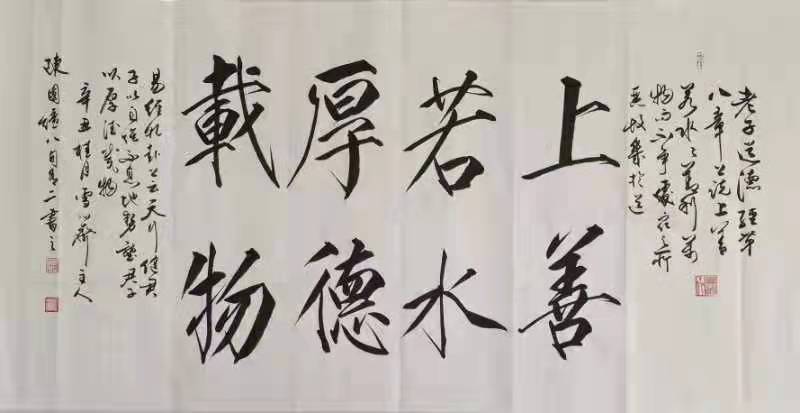 老子道德經第
八章公說上善
若水水善利萬
物而不爭處眾之所
惡故幾於道
上善
若水
厚德
載物
易經乾卦公云天行健君
子以自強不息地勢坤君子
以厚德載物
辛丑桂月雪齋主人
陳國
八旬有二書之